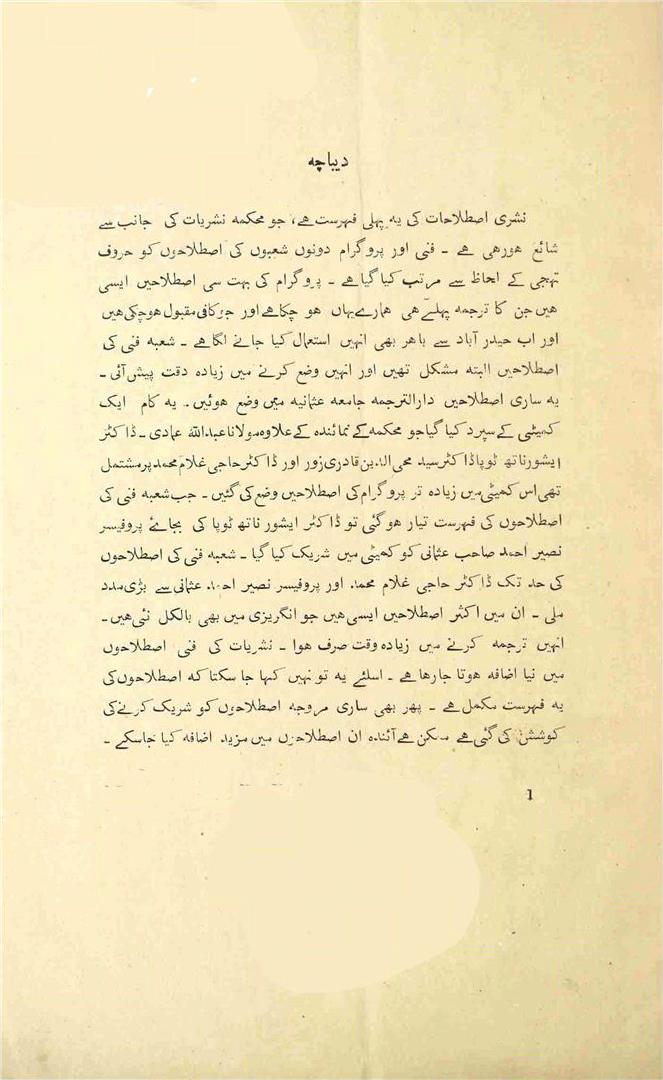 دیباچه
نشری اصطلاحات کی یه پہلی فہرست ہے، جو محکمه نشریات کی جانب سے
شائع ہورہی ہے ۔ فنی اور پروگرام دونوں شعبوں کی اصطلاحوں کو حروف
تہجی کے لحاظ سے مرتب کیا گیا ہے ۔ پروگرام کی بہت سی اصطلاحیں ایسی
ہیں جن کا ترجمه پہلے ہی ہمارے یہاں ہو چکا ہے اور جو کافی مقبول ہوچکی ہیں
اور اب حیدر آباد سے باہر بھی انہیں استعمال کیا جانے لگا ہے ۔ شعبه فنی کی
اصطلاحیں البته مشکل تھیں اور انہیں وضع کرنے میں زیادہ دقت پیش آئی ۔
یه ساری اصطلاحیں دارالترجمه جامعه عثمانیه میں وضع ہوئیں ۔ یه کام ایک
کمیٹی کے سپرد کیا گیا جو محکمه کے نمائندہ کے علاوہ مولانا عبداللہ عمادی ۔ ڈاکٹر
ایشورناتھ ٹوپا ڈاکٹر سید محی الدین قادری زور اور ڈاکٹر حاجی غلام محمد پر مشتمل
تھی اس کمیٹی میں زیادہ تر پروگرام کی اصطلاحیں وضع کی گئیں ۔ جب شعبه فنی کی
اصطلاحوں کی فہرست تیار ہو گئی تو ڈاکٹر ایشور ناتھ ٹوپا کی بجائے پروفیسر
نصیر احمد صاحب عثمانی کو کمیٹی میں شریک کیا گیا ۔ شعبه فنی کی اصطلاحوں
کی حد تک ڈاکٹر حاجی غلام محمد اور پروفیسر نصیر احمد عثمانی سے بڑی مدد
ملی ۔ ان میں اکثر اصطلاحیں ایسی ہیں جو انگریزی میں بھی بالکل نئی ہیں ۔
انہیں ترجمه کرنے میں زیادہ وقت صرف ہوا ۔ نشریات کی فنی اصطلاحوں
میں نیا اضافه ہوتا جارہا ہے ۔ اسلئے یه تو نہیں کہا جا سکتا که اصطلاحوں کی
یه فہرست مکمل ہے ۔ پھر بھی ساری مروجه اصطلاحوں کو شریک کرنے کی
کوشش کی گئی ہے ممکن ہے آئندہ ان اصطلاحوں میں مزید اضافه کیا جاسکے ۔
1